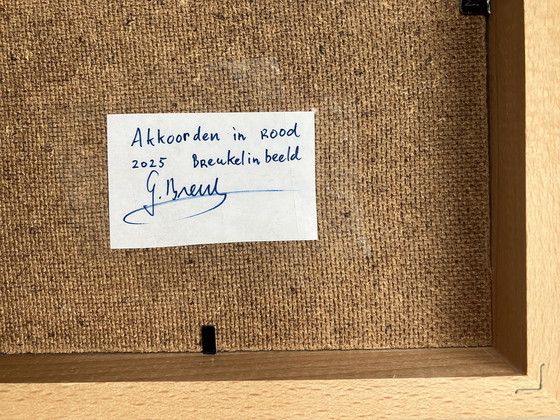 Akkoorden in ROOD
2025 Breukelinbeeld
G. Breuk